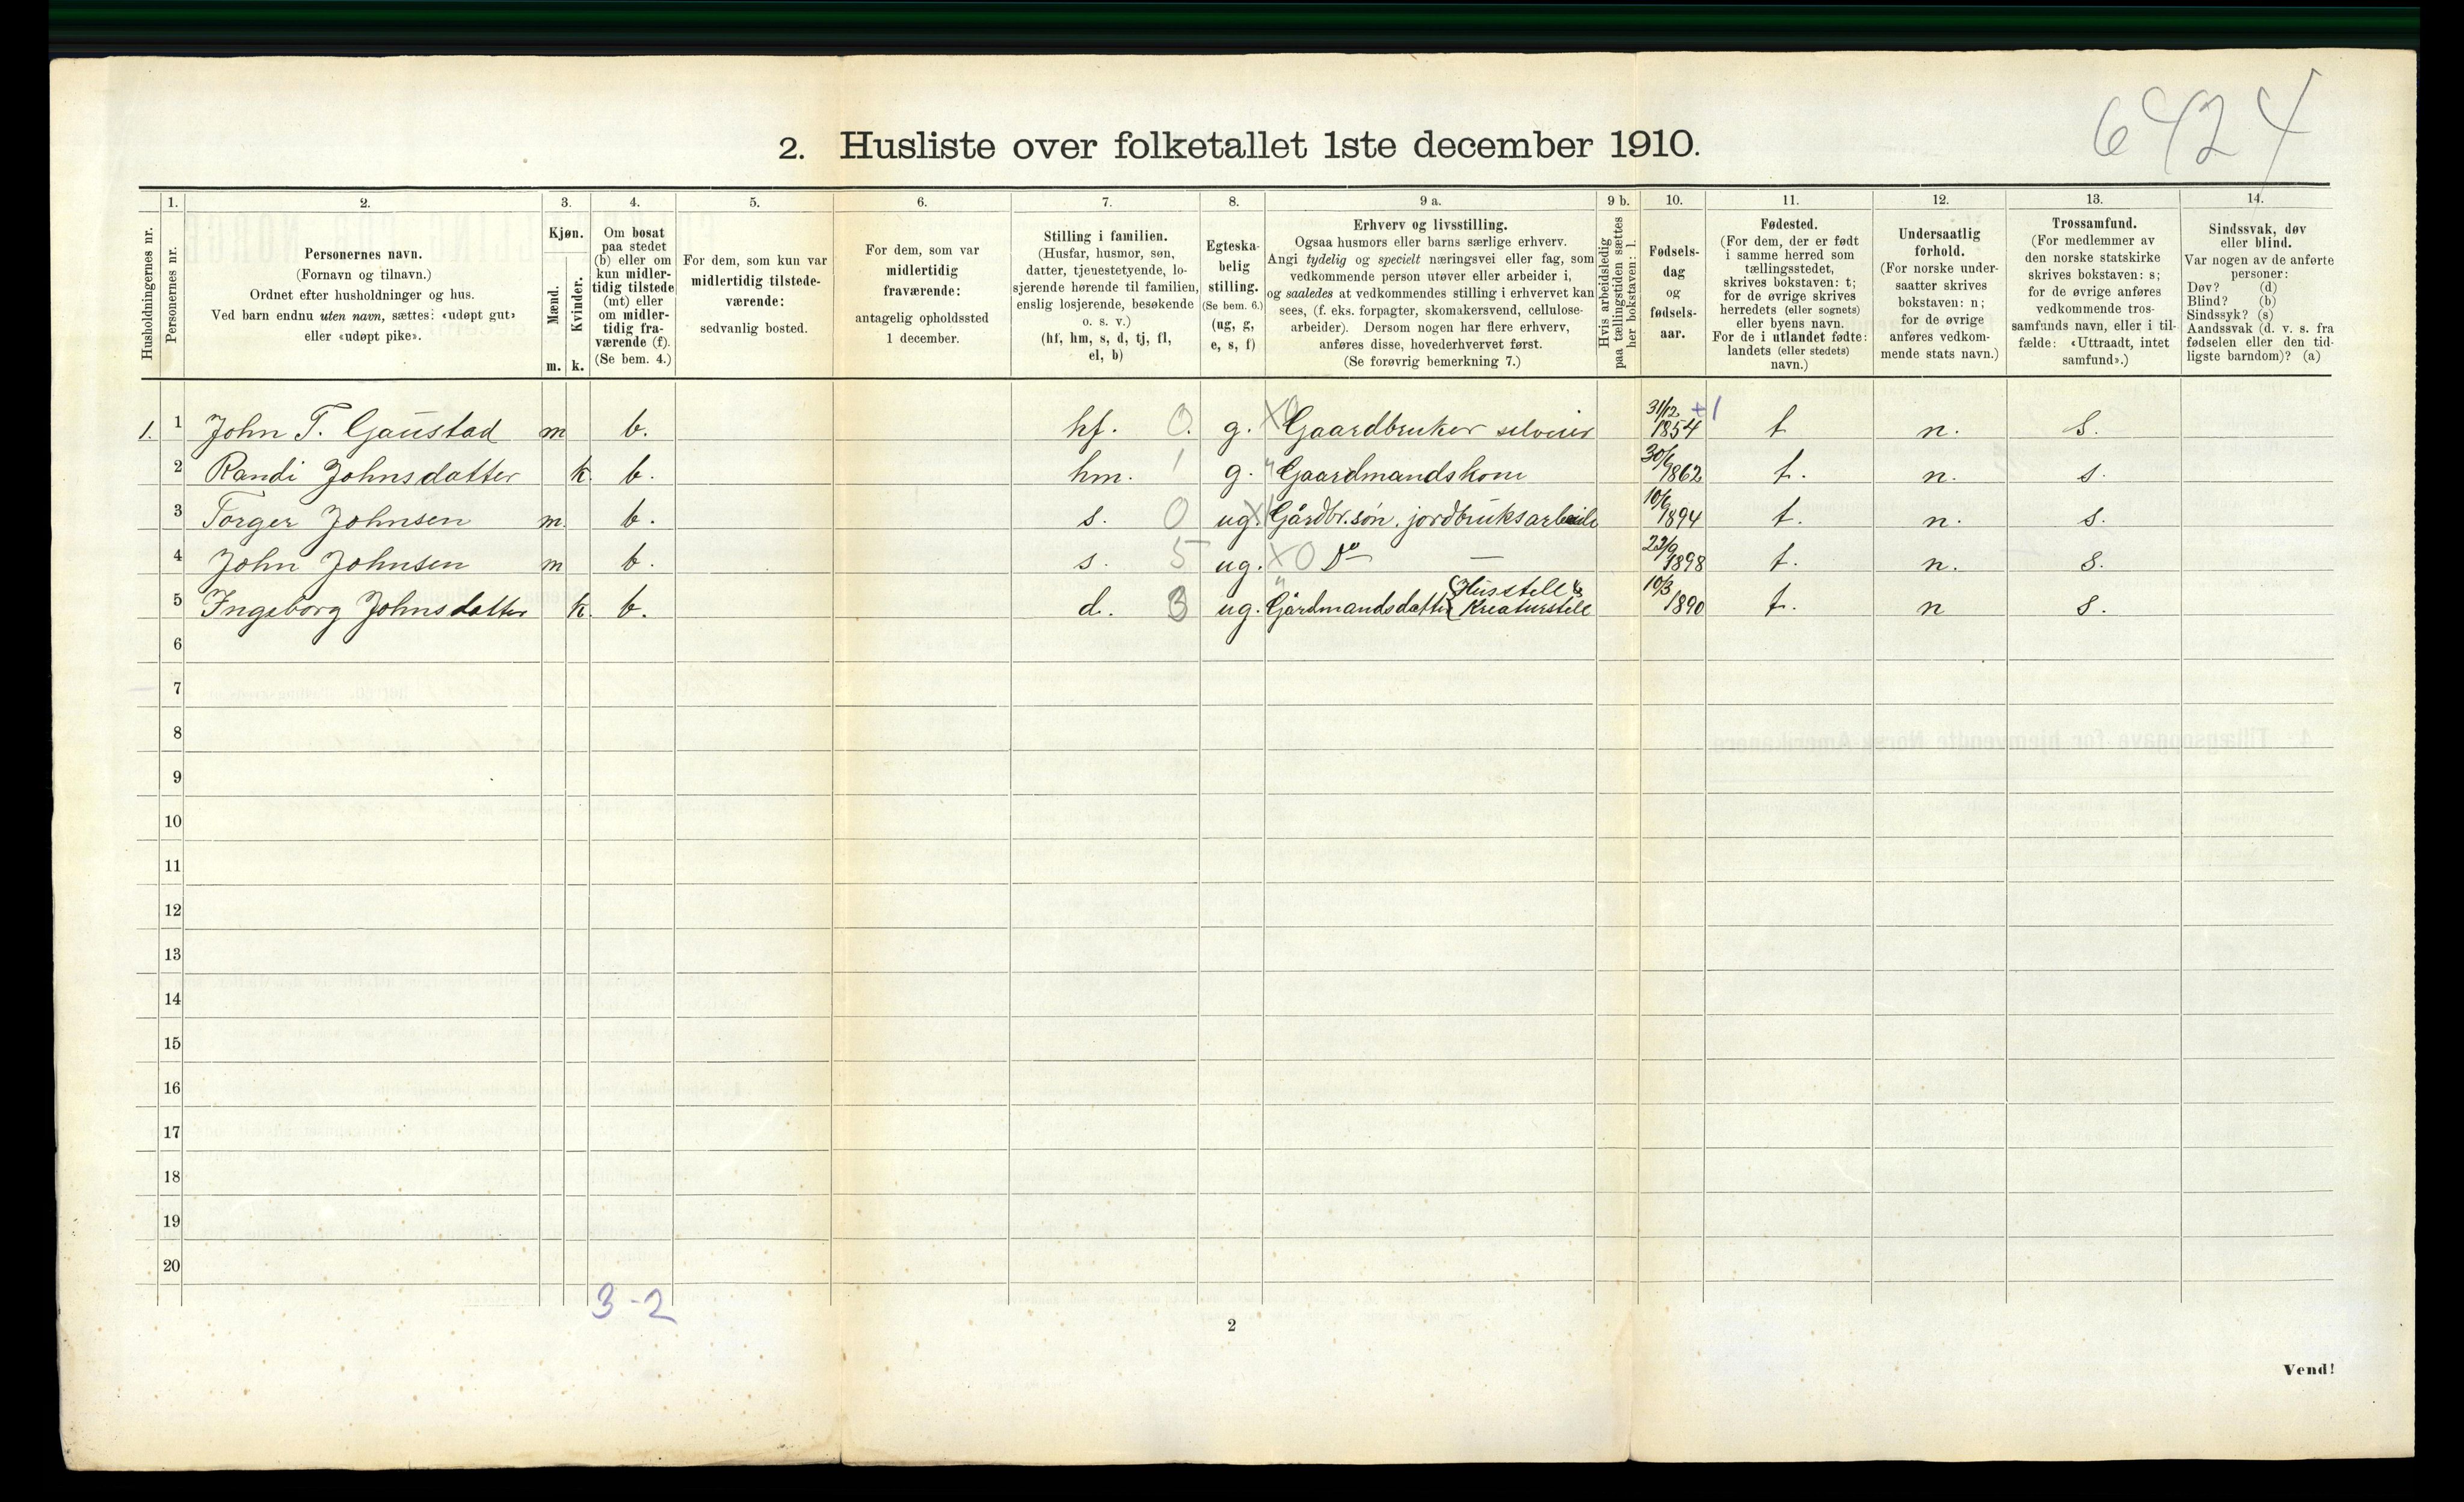 6424
2. Husliste over folketallet 1ste december 1910.
1. 2. 3. 4. 5. 6. 7. 8. 9 a. 9 b. 10. 11. 12. 13. 14.
Husholdningernes nr.
Personernes nr.
Personernes navn.
(Fornavn og tilnavn.)
Ordnet efter husholdninger og hus.
Ved barn endnu uten navn, sættes: «udøpt gut»
eller «udøpt pike».
Kjøn.
Mænd.
Kvinder.
m. k.
Om bosat
paa stedet
(b) eller om
kun midler-
tidig tilstede
(mt) eller
om midler-
tidig fra-
værende (f).
(Se bem. 4.)
For dem, som kun var
midlertidig tilstede-
værende:
sedvanlig bosted.
For dem, som var
midlertidig
fraværende:
antagelig opholdssted
1 december.
Stilling i familien.
(Husfar, husmor, søn,
datter, tjenestetyende, lo-
sjerende hørende til familien,
enslig losjerende, besøkende
o. s. v.)
(hf, hm, s, d, tj, fl,
el, b)
Egteska-
belig
stilling.
(Se bem. 6.)
(ug, g,
e, s, f)
Erhverv og livsstilling.
Ogsaa husmors eller barns særlige erhverv.
Angi tydelig og specielt næringsvei eller fag, som
vedkommende person utøver eller arbeider i,
og saaledes at vedkommendes stilling i erhvervet kan
sees, (f. eks. forpagter, skomakersvend, cellulose-
arbeider). Dersom nogen har flere erhverv,
anføres disse, hovederhvervet først.
(Se forøvrig bemerkning 7.)
Hvis arbeidsledig
paa tællingstiden sættes
her bokstaven: l.
Fødsels-
dag
og
fødsels-
aar.
Fødested.
(For dem, der er født
i samme herred som
tællingsstedet,
skrives bokstaven: t;
for de øvrige skrives
herredets (eller sognets)
eller byens navn.
For de i utlandet fødte:
landets (eller stedets)
navn.)
Undersaatlig
forhold.
(For norske under-
saatter skrives
bokstaven: n;
for de øvrige
anføres vedkom-
mende stats navn.)
Trossamfund.
(For medlemmer av
den norske statskirke
skrives bokstaven: s;
for de øvrige anføres
vedkommende tros-
samfunds navn, eller i til-
fælde: «Uttraadt, intet
samfund».)
Sindssvak, døv
eller blind.
Var nogen av de anførte
personer:
Døv? (d)
Blind? (b)
Sindssyk? (s)
Aandssvak (d. v. s. fra
fødselen eller den tid-
ligste barndom)? (a)
1. 1 John T. Gaustad m b. hf. 0. g. X0 Gaardbruker selveier 31/12 1854 +1 t n. s.
2 Randi Johnsdatter k. b. hm. 1 g. " Gaardmandskone 30/6 1862 t. n. s.
3 Torger Johnsen m. b. s. 0 ug. X Gårdbr.søn. jordbruksarbeide 10/9 1894 t. n. s.
4 John Johnsen m b. s. 5 ug. X0 Do — 1898 t. n. s.
5 Ingeborg Johnsdatter k. b. d. 3 ug. " Gårdmandsdatter { Husstell & Kreaturstell 10/3 1890 t. n s.
6
7
8
9
10
11
12
13
14
15
16
17
18
19
20
3-2
2
Vend!